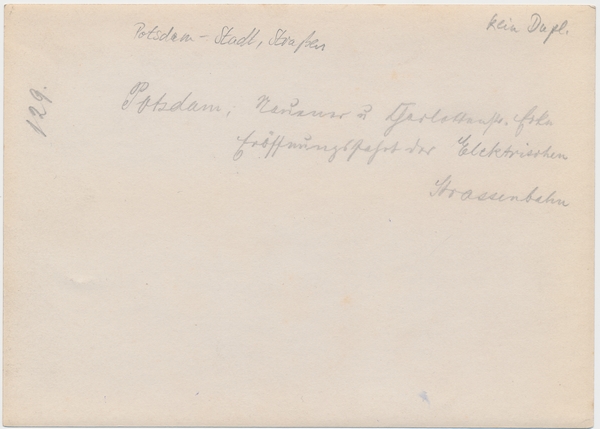 Potsdam – Stadt, Straßen
kein Dupl.
129.
Potsdam, Nauener u Charlottenstr. Ecke
Eröffnungsfahrt der Elektrischen
Strassenbahn